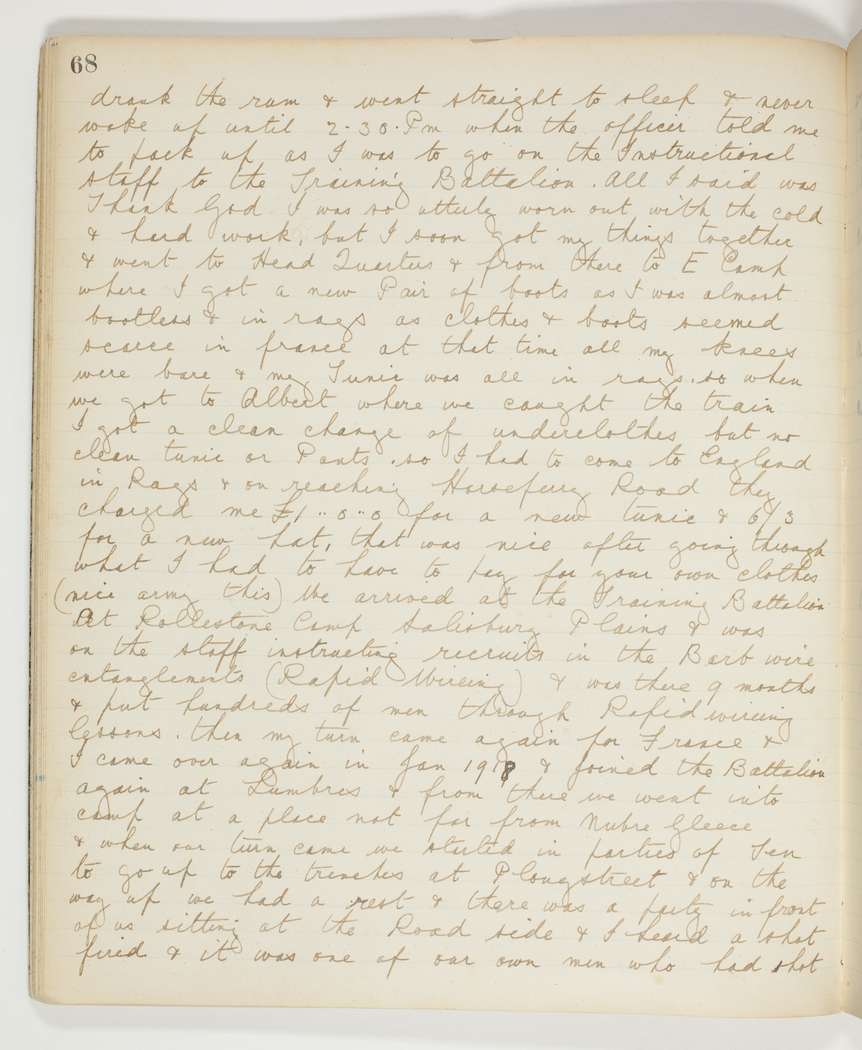 68
drank the rum & went straight to sleep & never
woke up until 2-30.Pm when the officer told me
to pack up as I was to go on the Instructional
staff to the Training Battalion. All I said was
Thank God I was so utterly worn out with the cold
& hard work, but I soon got my things together
& went to Head Quarters & from there to E Camp
where I got a new Pair of boots as I was almost
bootless & in rags as clothes & boots seemed
scarce in france at that time all my knees
were bare & my Tunic was all in rags. so when
we got to Albert where we caught the train
I got a clean change of underclothes but no
clean tunic or Pants. so I had to come to England
in Rags & on reaching Horseferry Road they
charged me £1..0..0 for a new tunic & 6/3
for a new hat, that was nice after going through
what I had to have to pay for your own clothes
(nice army this) We arrived at the Training Battalion
At Rollestone Camp Salisbury Plains & was
on the staff instructing recruits in the Barb wire
entanglements (Rapid Wireing) & was there 9 months
& put hundreds of men through Rapid wireing
lessons. then my turn came again for France &
I came over again in Jan 1918 & joined the Battalion
again at Lumbres & from there we went into
camp at a place not far from Nubre Gleece
& when our turn came we started in parties of Ten
to go up to the trenches at Plougstreet & on the
way up we had a rest & there was a party in front
of us sitting at the Road side & I heard a shot
fired & it was one of our own men who had shot